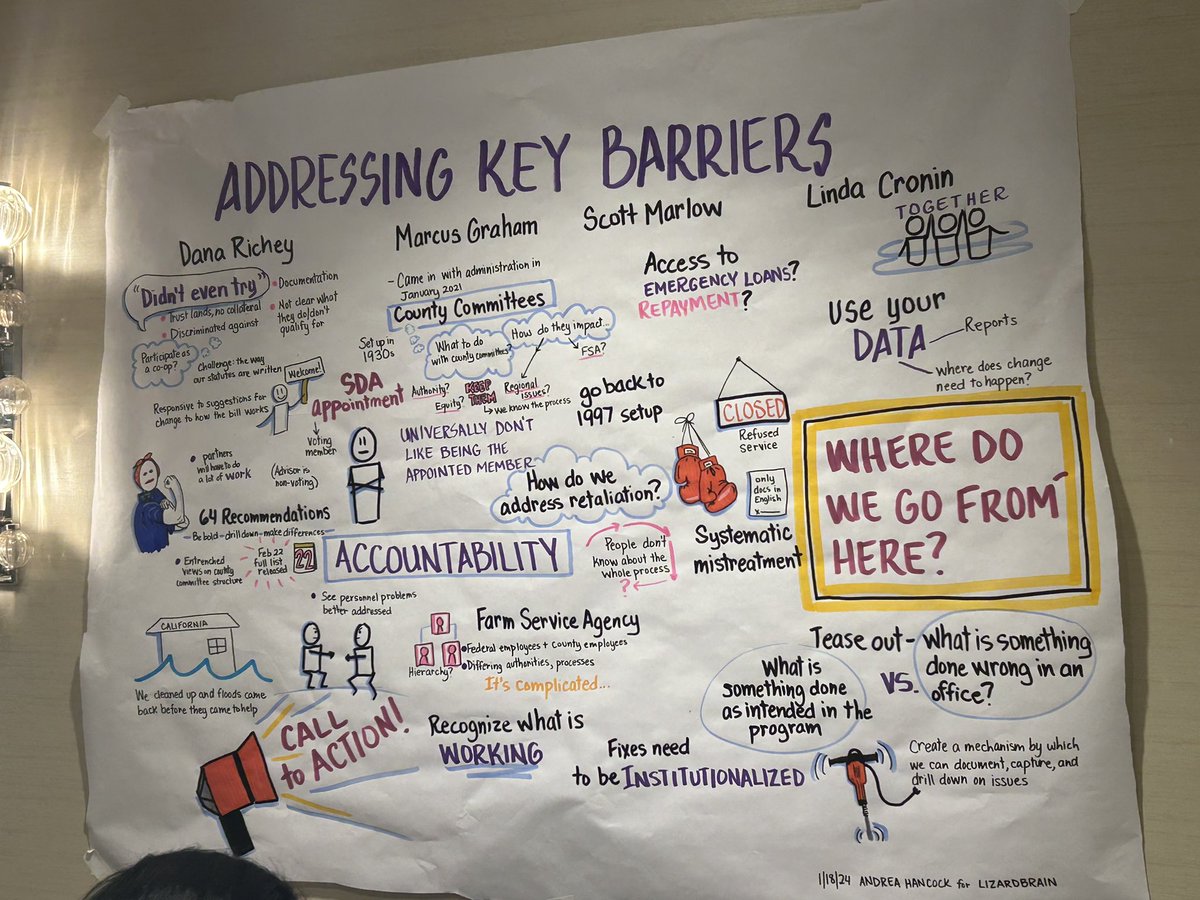 ADDRESSING KEY BARRIERS
Dana Richey
"Didn't even try"
• Documentation
• Trust lands, no collateral
• Discriminated against
• Not clear what
they do/don't
qualify for
Participate as
a co-op?
Challenge: the way
our statutes are written
Welcome!
Responsive to suggestions for
change to how the bill works
Voting
member
• partners
will have to do
a lot of work
(Advisor is
non-voting)
64 Recommendations
- Be bold - drill down - make differences
• Entrenched
views on county
committee structure
Feb 22
full list
released
22
CALIFORNIA
We cleaned up and floods came
back before they came to help
Marcus Graham
- Came in with administration in
January 2021
County Committees
Set up in
1930s
What to do
with county committees?
How do they impact...
FSA?
SDA
appointment
Authority?
Equity?
KEEP
THEM
Regional
issues?
we know the process
UNIVERSALLY DON'T
LIKE BEING THE
APPOINTED MEMBER
go back to
1997 setup
How do we
address retaliation?
ACCOUNTABILITY
People don't
know about the
whole process
?
• See personnel problems
better addressed
Farm Service Agency
• Federal employees + county employees
• Differing authorities, processes
Hierarchy?
It's complicated...
Scott Marlow
Access to
EMERGENCY LOANS?
REPAYMENT?
CLOSED
Refused
Service
only
docs in
English
x
Systematic
mistreatment
Linda Cronin
TOGETHER
USE your
DATA
Reports
Where does change
need to happen?
WHERE DO
WE GO FROM
HERE?
Tease out -
What is
something done
as intended in the
program
VS.
What is something
done wrong in an
office?
CALL
to ACTION!
Recognize what is
WORKING
Fixes need
to be INSTITUTIONALIZED
Create a mechanism by which
we can document, capture, and
drill down on issues
1/18/24 ANDREA HANCOCK for LIZARDBRAIN